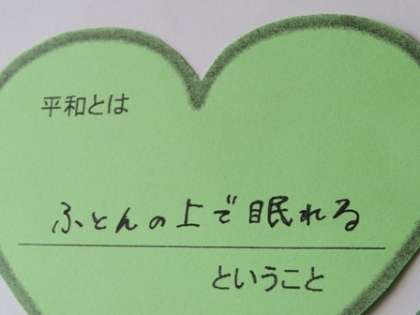 平和とは
ふとんの上で眠れる
ということ